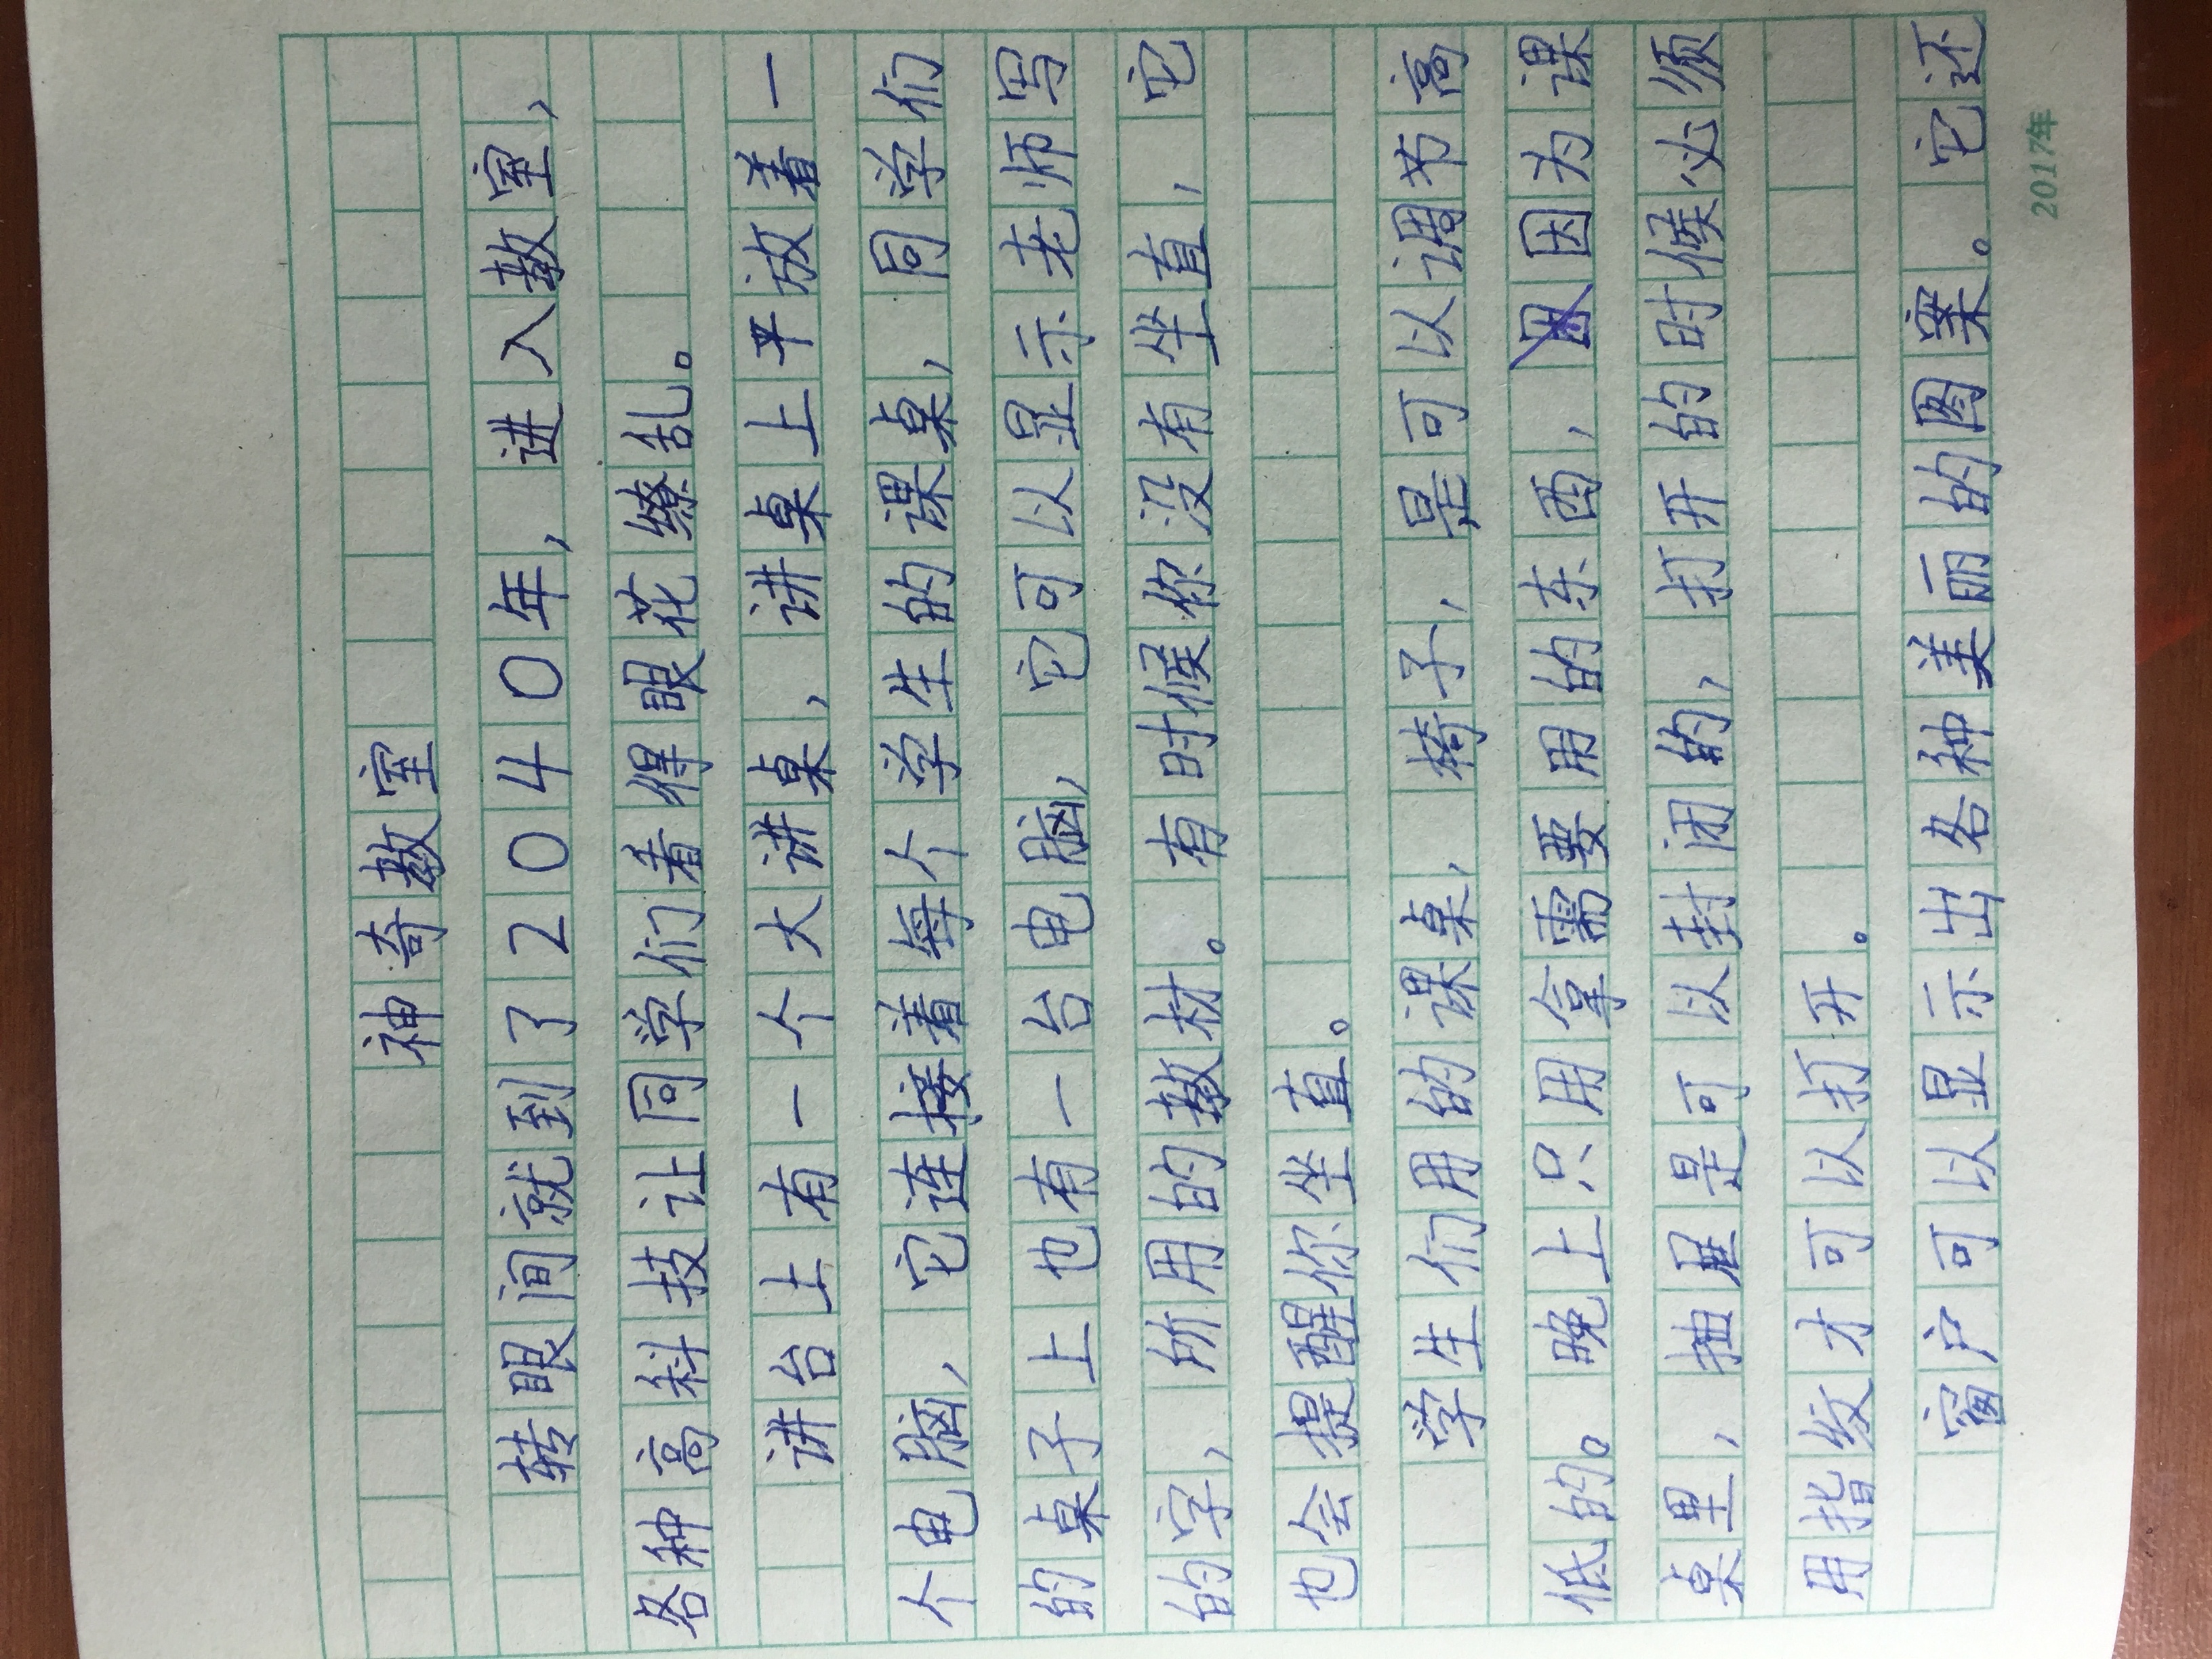 神奇教室
转眼间就到了2040年，进入教室，
各种高科技让同学们看得眼花缭乱。
讲台上有一个大讲桌，讲桌上平放着一
个电脑，它连接着每个学生的课桌，同学们
的桌子上也有一台电脑，它可以显示老师写
的字，所用的教材。有时候你没有坐直，它
也会提醒你坐直。
学生们用的课桌，椅子，是可以调节高
低的。晚上只用拿需要用的东西，因为课
桌里，抽屉是可以封闭的，打开的时候必须
用指纹才可以打开。
窗户可以显示出各种美丽的图案。它还
2017年